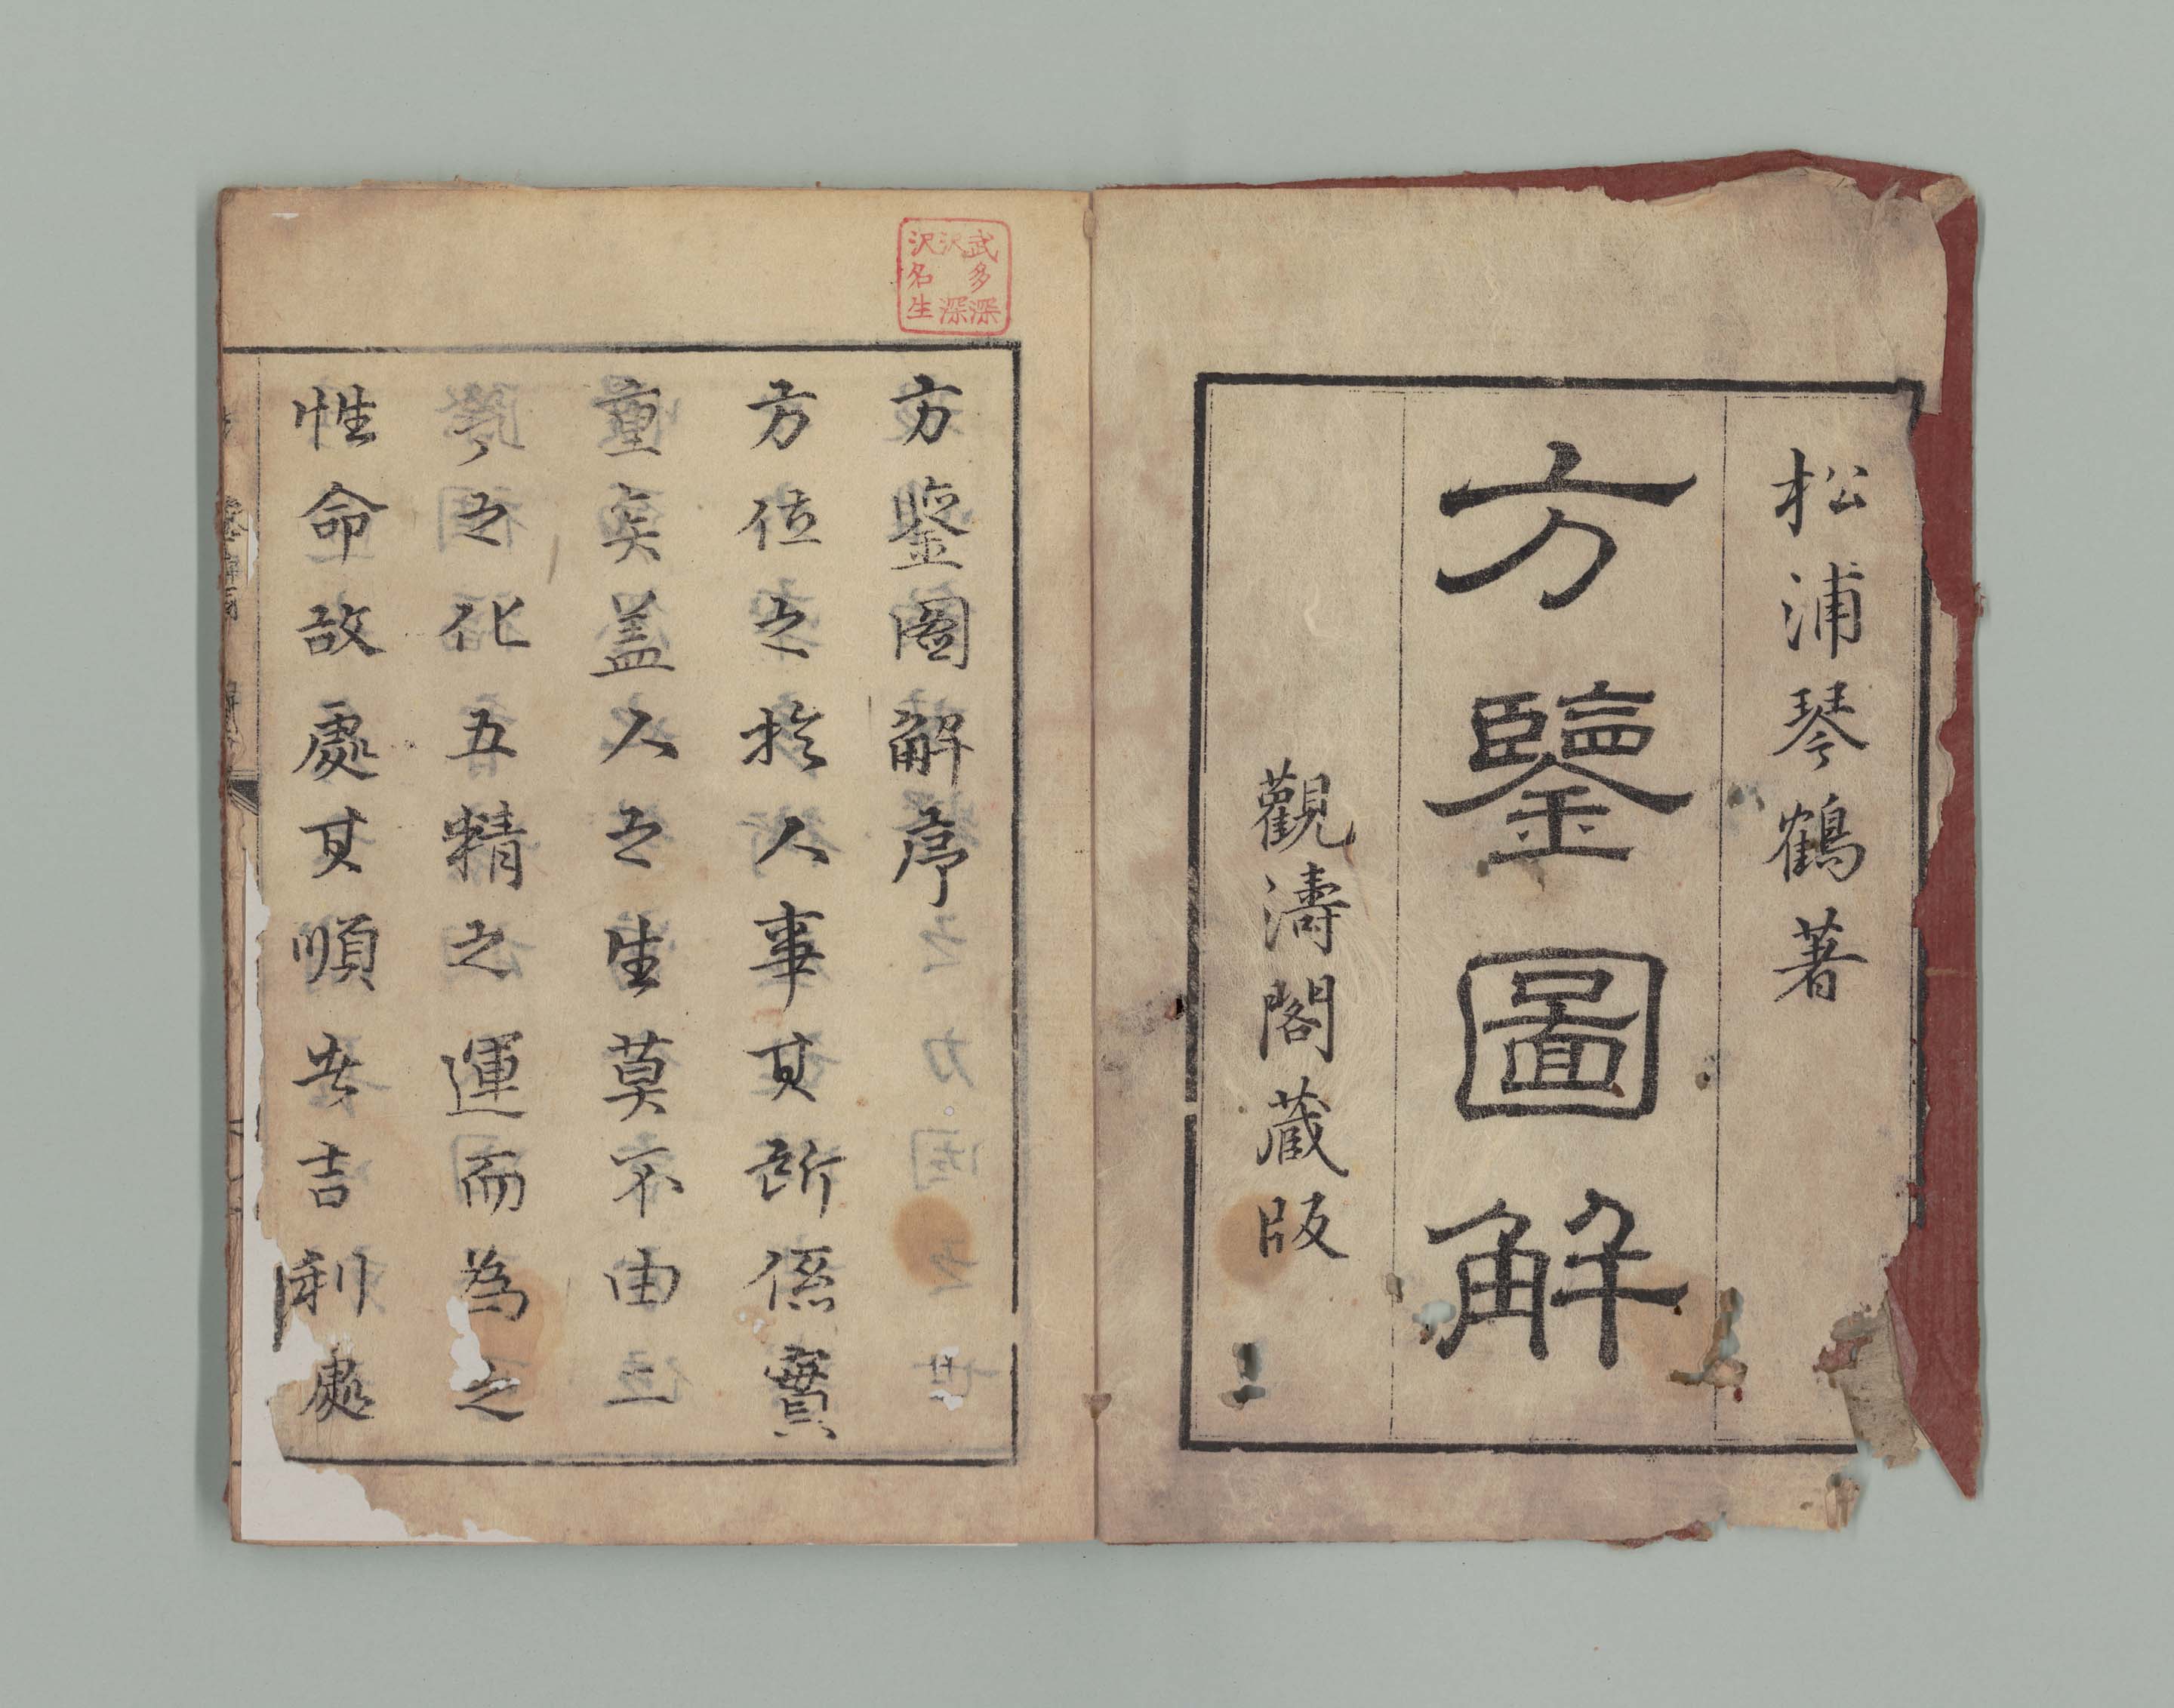 松浦琴鶴著
方鑒圖解
觀濤閣蔵版
方鑒圖解序
方位之於人事其所係實
重矣蓋人之生莫不由立
之化五精之運而為之
性命故處其順者吉利處
武多深
沢深
沢名生